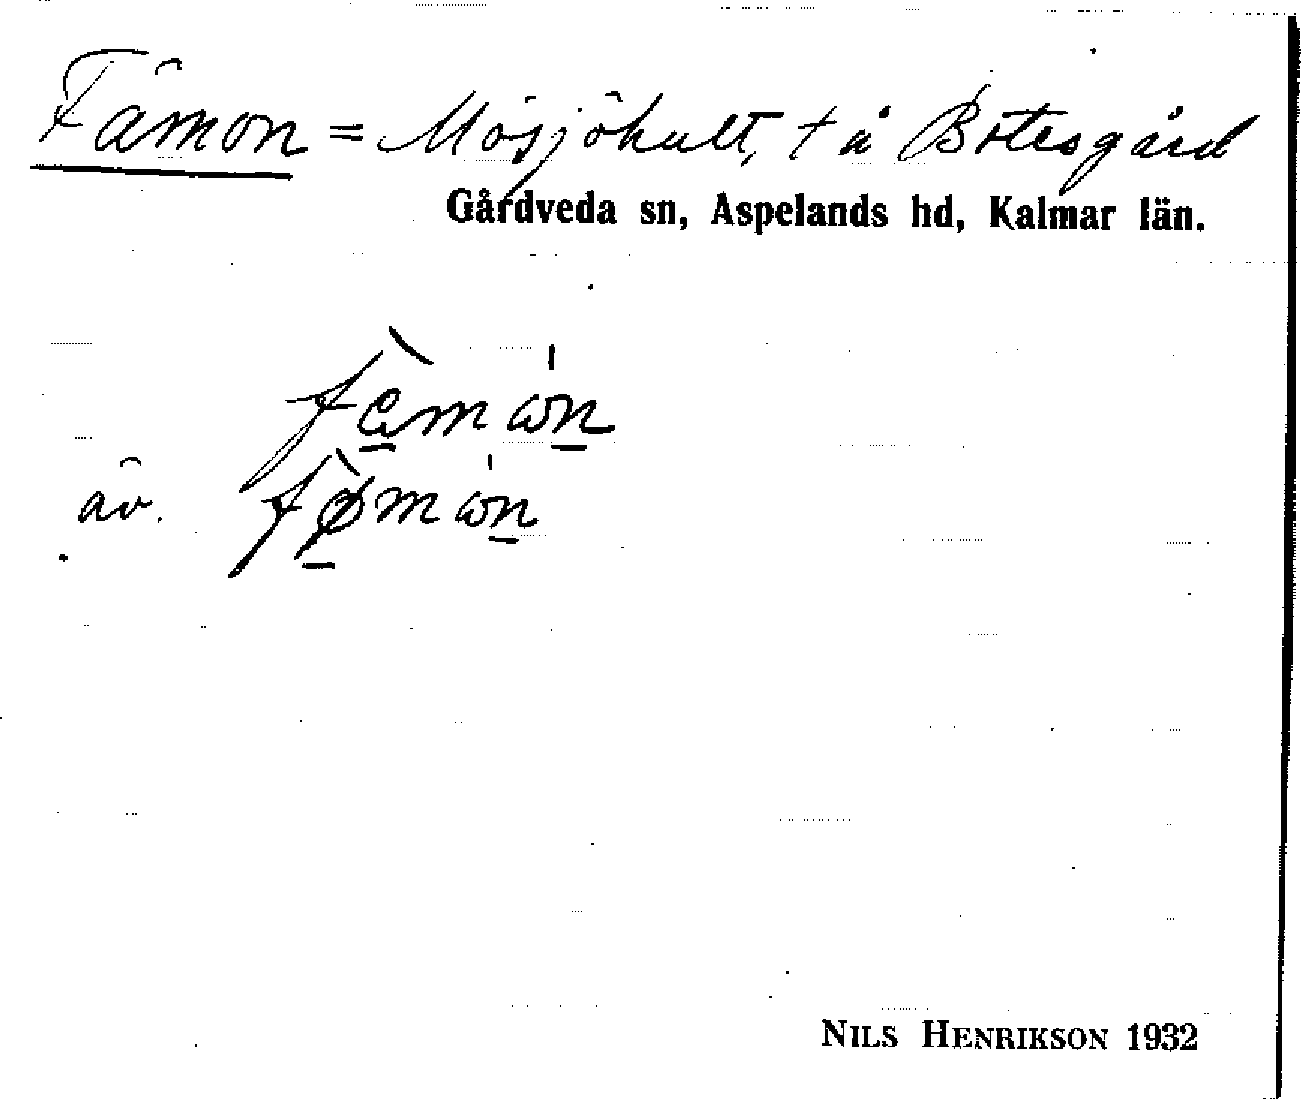 Fämon = Mösjökult, t å Botesgård
Gårdveda sn, Aspelands hd, Kalmar län.
fèmωn
äv. fø̀mωn
NILS HENRIKSON 1932